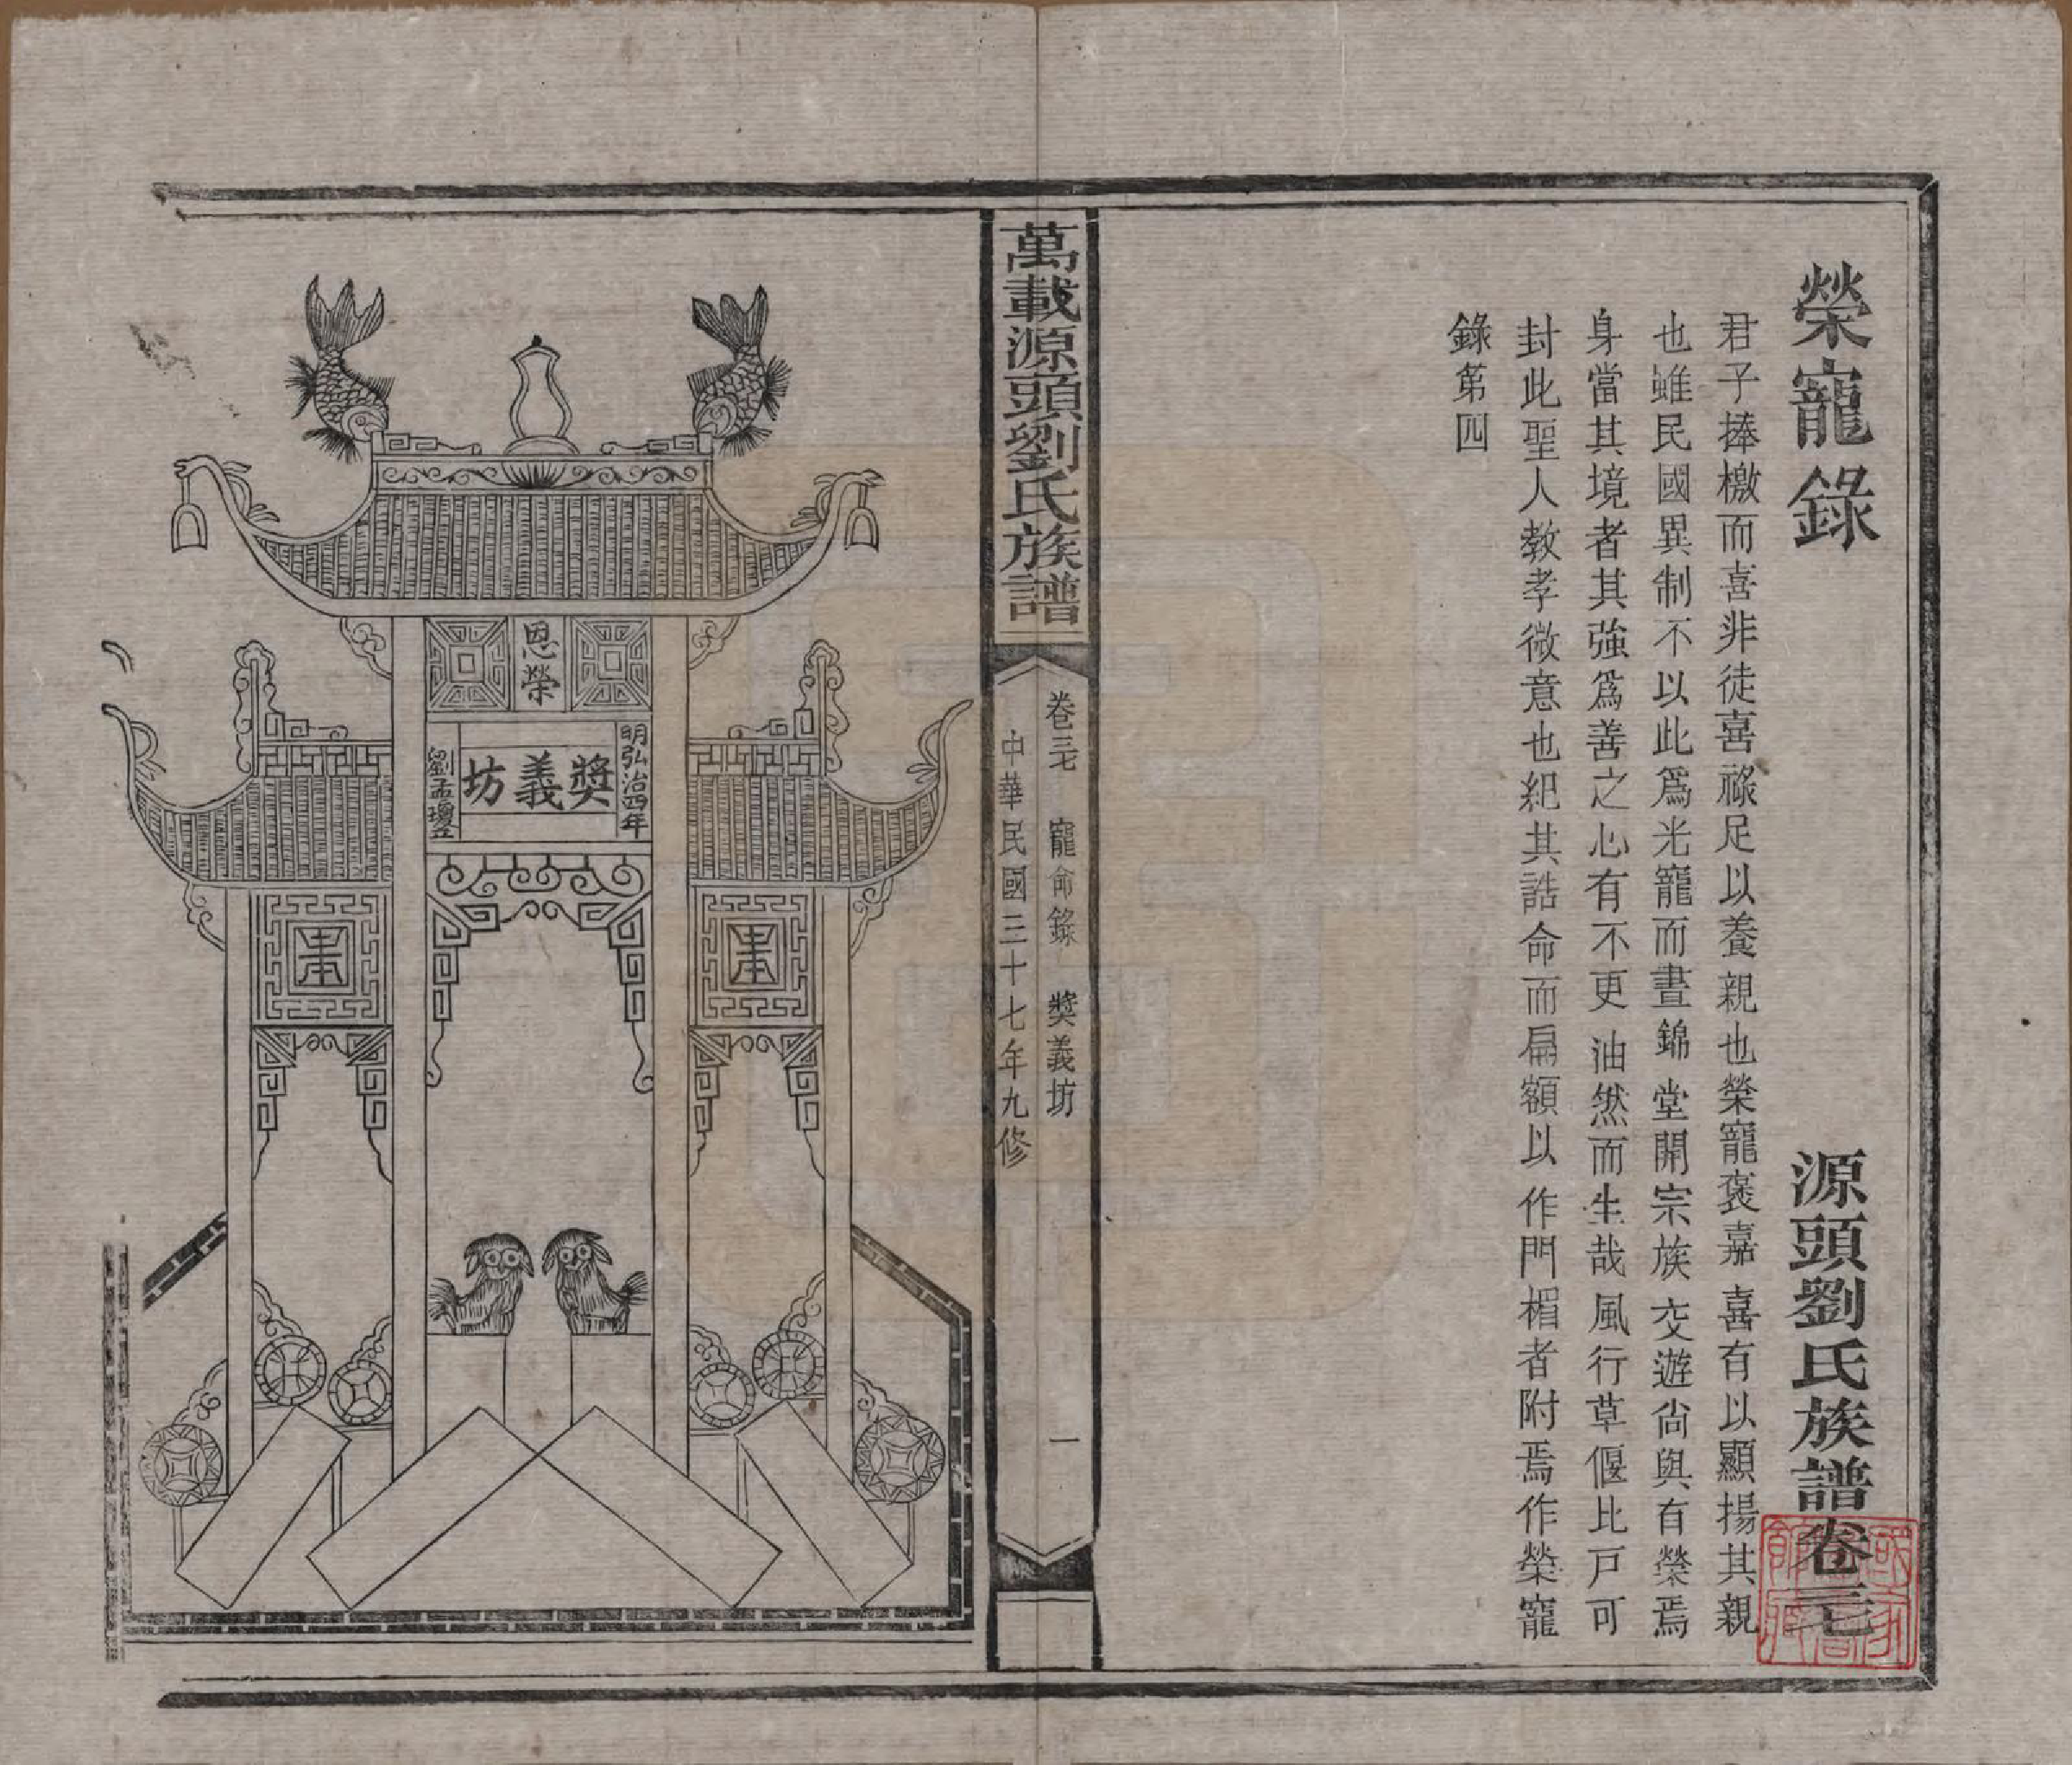 榮寵錄
源頭劉氏族譜卷三七
君子捧檄而喜非徒喜祿足以養親也榮寵褒嘉喜有以顯揚其親
也雖民國異制不以此爲光寵而晝錦堂開宗族交遊尙與有榮焉
身當其境者其強爲善之心有不更油然而生哉風行草偃比戸可
封此聖人敎孝微意也紀其誥命而扁額以作門楣者附焉作榮寵
錄第四
萬載源頭劉氏族譜
卷三七 寵命錄 奬義坊
一
中華民國三十七年九修
恩榮
明弘治四年
奬義坊
劉孟瓊立